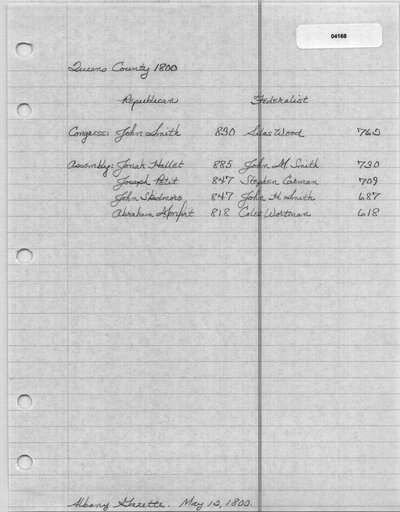 04168
Queens County 1800
Republican Federalist
Congress: John Smith 830 Silas Wood 762
Assembly: Jonah Hallet 885 John M. Smith 730
Joseph Petit 847 Stephen Carman 709
John Skidmore 847 John H. Smith 687
Abraham Monfort 818 Coles Wortman 618
Albany Gazette. May 12, 1800.